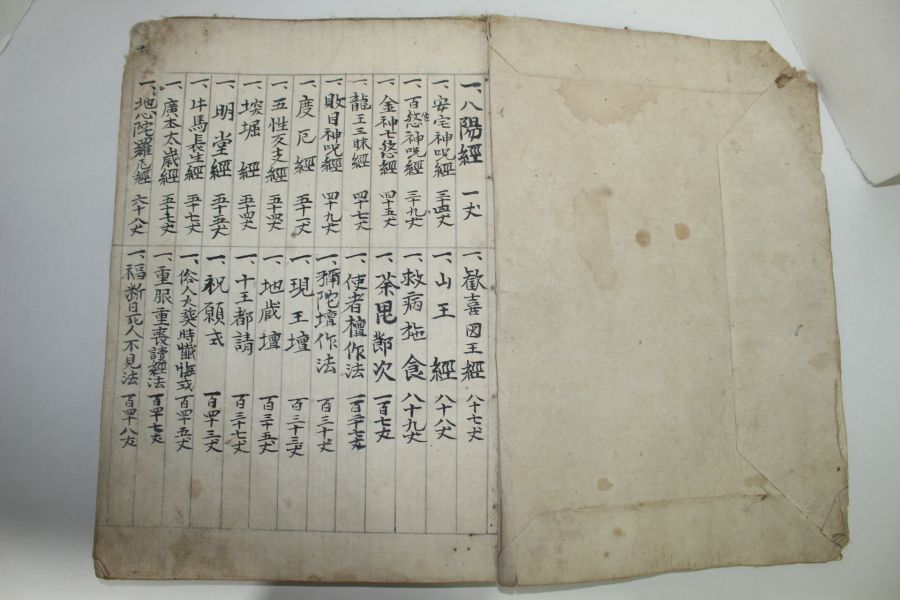 一、八陽經 一丈
一、安宅神呪經 三十四丈
一、百怨神呪經 三十九丈
一、金神七殺經 四十五丈
一、龍王三昧經 四十七丈
一、敗目神呪經 四十九丈
一、度厄經 五十一丈
一、五性反支經 五十四丈
一、堗堀經 五十四丈
一、明堂經 五十五丈
一、牛馬長生經 五十七丈
一、廣本太歲經 五十七丈
一、地心陀羅尼經 六十八丈
一、歡喜国王經 八十七丈
一、山王經 八十八丈
一、救病施食 八十九丈
一、茶毘節次 一百七丈
一、使者壇作法
一、彌陀壇作法 百三十丈
一、現王壇 百三十三丈
一、地藏壇 百三十五丈
一、十王都請 百三十七丈
一、祝願式 百四十三丈
一、俗人火葬時懺悔式 百四十五丈
一、重服重喪讀經法 百四十七丈
一、禍斷日死人不見法 百四十八丈